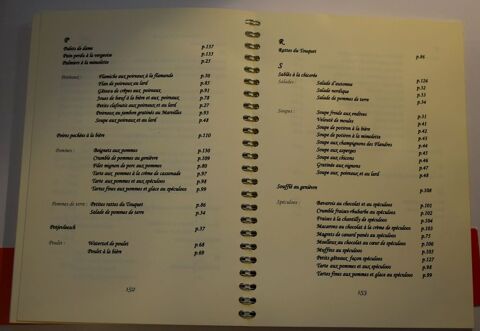 P
Palets de dame p.137
Pain perdu à la vergeoise p.133
Palmiers à la mimolette p.25
Poireaux : Flamiche aux poireaux à la flamande p.30
Flan de poireaux au lard p.50
Gâteau de crêpes aux poireaux, p.91
Joues de bœuf à la bière et aux poireaux, p.78
Petits clafoutis aux poireaux et au lard p.27
Poireaux au jambon gratinés au Maroilles p.93
Soupe aux poireaux et au lard p.48
Poires pochées à la bière p.110
Pommes : Beignets aux pommes p.130
Crumble de pommes au genièvre p.109
Filet mignon de porc aux pommes p.80
Tarte aux pommes à la crème de cassonade p.97
Tarte aux pommes et aux spéculoos p.98
Tartes fines aux pommes et glace au spéculoos p.99
Pommes de terre : Petites rattes du Touquet p.86
Salade de pommes de terre p.34
Potjevleesch p.37
Poulet : Waterzoï de poulet p.68
Poulet à la bière p.69
152
R
Rattes du Touquet p.86
S
Sablés à la chicorée p.126
Salades : Salade d'automne p.32
Salade nordique p.33
Salade de pommes de terre p.34
Soupes : Soupe froide aux endives p.31
Velouté de moules p.41
Soupe de potiron à la bière p.42
Soupe de potiron à la mimolette p.43
Soupe aux champignons des Flandres p.44
Soupe aux asperges p.45
Soupe aux chicons p.46
Gratinée aux oignons p.47
Soupe aux poireaux et au lard p.48
Soufflé au genièvre p.108
Spéculoos : Bavarois au chocolat et au spéculoos p.101
Crumble fraises rhubarbe au spéculoos p.102
Fraises à la chantilly de spéculoos p.103
Macarons au chocolat à la crème de spéculoos p.104
Magrets de canard panés au spéculoos p.75
Moelleux au chocolat au cœur de spéculoos p.106
Muffins au spéculoos p.105
Petits gâteaux, façon spéculoos p.127
Tarte aux pommes et aux spéculoos p.98
Tartes fines aux pommes et glace au spéculoos p.99
153